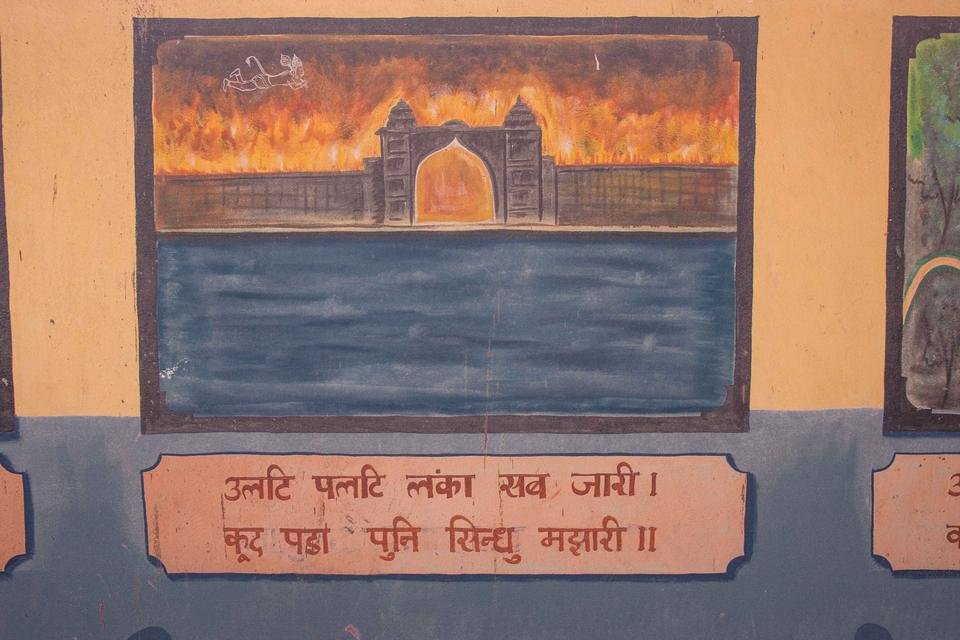 उलटि पलटि लंका सब जारी ।
कूद पड़ा पुनि सिन्धु मझारी ॥